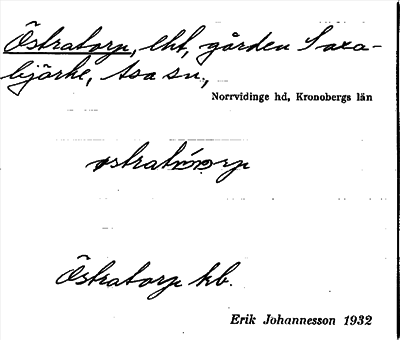 Östratorp, eht, gården Saxa-
björke, Asa sn,
Norrvidinge hd, Kronobergs län
Östratorp kb.
Erik Johannesson 1932